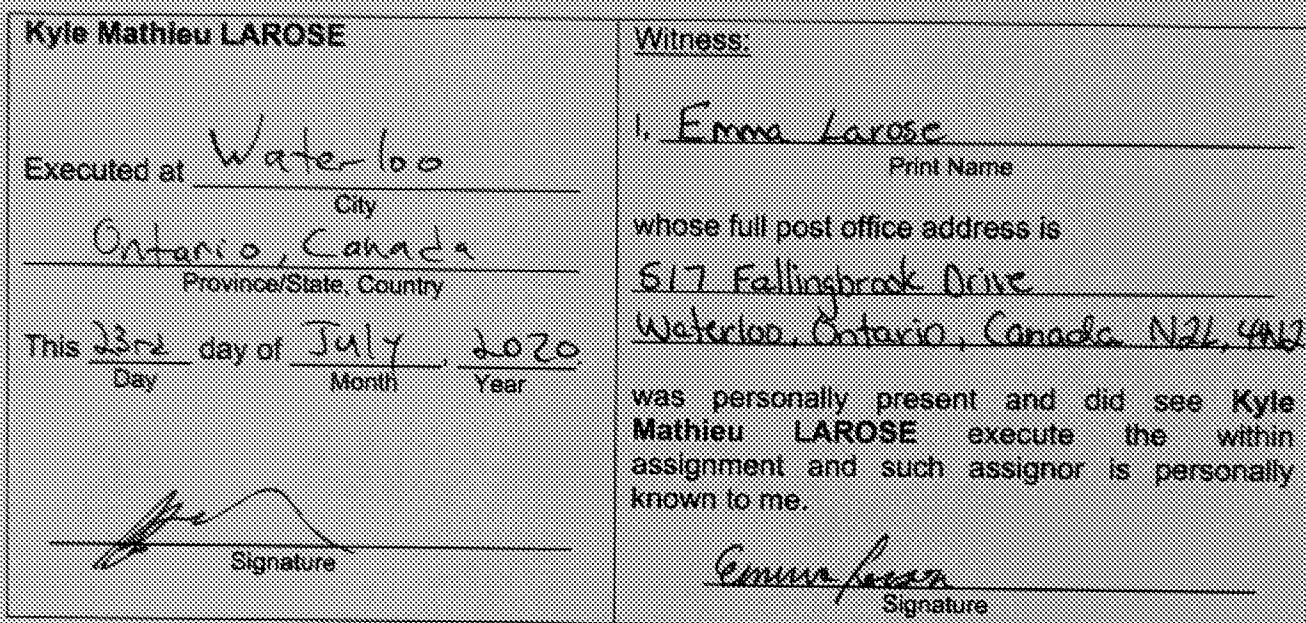 Kyle Mathieu LAROSE
Executed at Waterloo
City
Ontario, Canada
Province/State, Country
This 23rd day of July, 2020
Day Month Year
Signature
Witness:
I, Emma Larose
Print Name
whose full post office address is
517 Fallingbrook Drive
Waterloo, Ontario, Canada N2L
was personally present and did see Kyle
Mathieu LAROSE execute the within
assignment and such assignor is personally
known to me.
Emma Larose
Signature